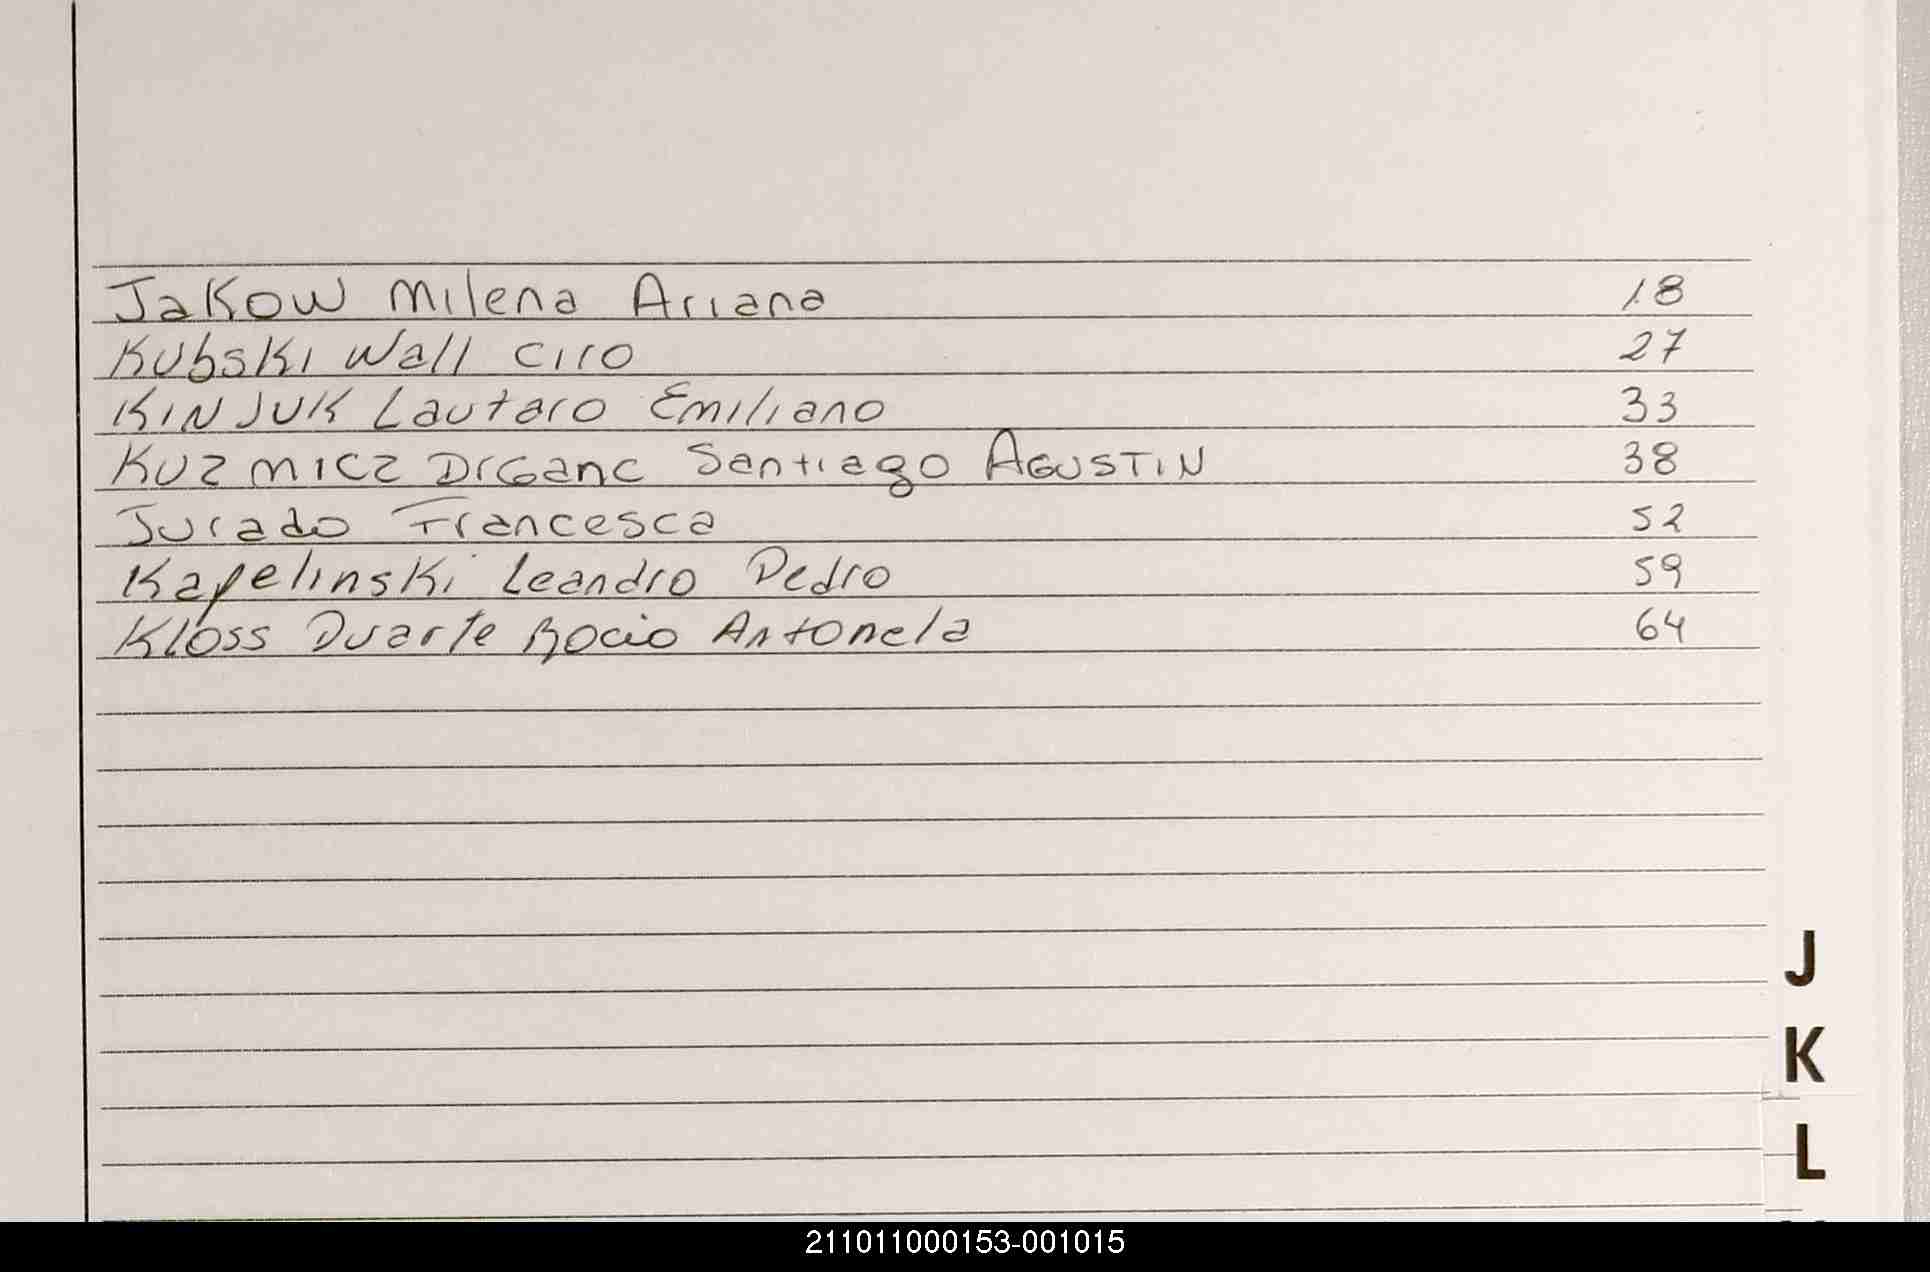 Jakow Milena Ariana 18
Kubski Wall Ciro 27
KINJUK Lautaro Emiliano 33
Kuzmicz Drganc Santiago AGUSTIN 38
Jurado Francesca 52
Kapelinski Leandro Pedro 59
Kloss Duarte Rocio Antonela 64
J
K
L
211011000153-001015